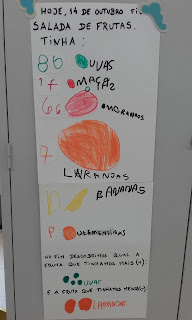 HOJE, 14 DE OUTUBRO FI
SALADA DE FRUTAS.
TINHA:
86 UVAS
17 MAÇÃS
66 MORANGOS
7
LARANJAS
BANANAS
NO FIM DESCOBRIMOS QUAL A
FRUTA QUE TINHAMOS MAIS (+):
UVAS
E A FRUTA QUE TINHAMOS MENOS(-):
LARANJAS